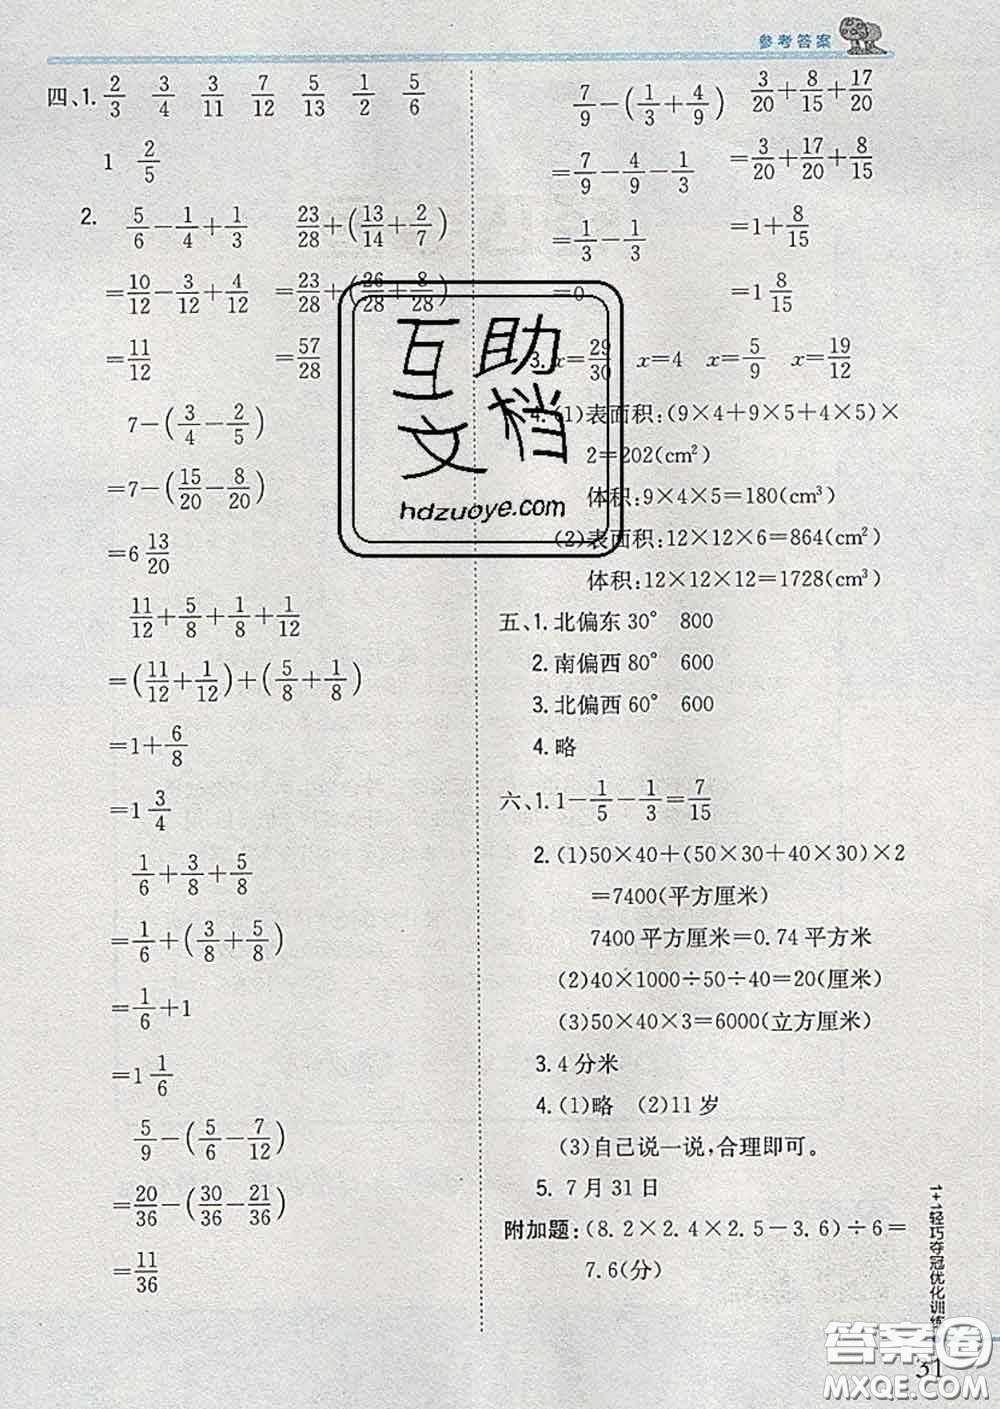 参考答案
四、1. 2/3 3/4 3/11 7/12 5/13 1/2 5/6
1 2/5
2. 5/6-1/4+1/3 23/28+(13/14+2/7)
=10/12-3/12+4/12 =23/28+(26/28+8/28)
=11/12 =57/28
7-(3/4-2/5)
=7-(15/20-8/20)
=6 13/20
11/12+5/8+1/8+1/12
=(11/12+1/12)+(5/8+1/8)
=1+6/8
=1 3/4
1/6+3/8+5/8
=1/6+(3/8+5/8)
=1/6+1
=1 1/6
5/9-(5/6-7/12)
=20/36-(30/36-21/36)
=11/36
7/9-(1/3+4/9) 3/20+8/15+17/20
=7/9-4/9-1/3 =3/20+17/20+8/15
=1/3-1/3 =1+8/15
=0 =1 8/15
3. x=29/30 x=4 x=5/9 x=19/12
4. (1)表面积:(9×4+9×5+4×5)×
2=202(cm²)
体积:9×4×5=180(cm³)
(2)表面积:12×12×6=864(cm²)
体积:12×12×12=1728(cm³)
五、1. 北偏东30° 800
2. 南偏西80° 600
3. 北偏西60° 600
4. 略
六、1. 1-1/5-1/3=7/15
2. (1)50×40+(50×30+40×30)×2
=7400(平方厘米)
7400平方厘米=0.74平方米
(2)40×1000÷50÷40=20(厘米)
(3)50×40×3=6000(立方厘米)
3. 4分米
4. (1)略 (2)11岁
(3)自己说一说,合理即可。
5. 7月31日
附加题:(8.2×2.4×2.5-3.6)÷6=
7.6(分)
1+1轻巧夺冠优化训练
31
互助
文档
hdzuoye.com
答案圈
MXQE.COM